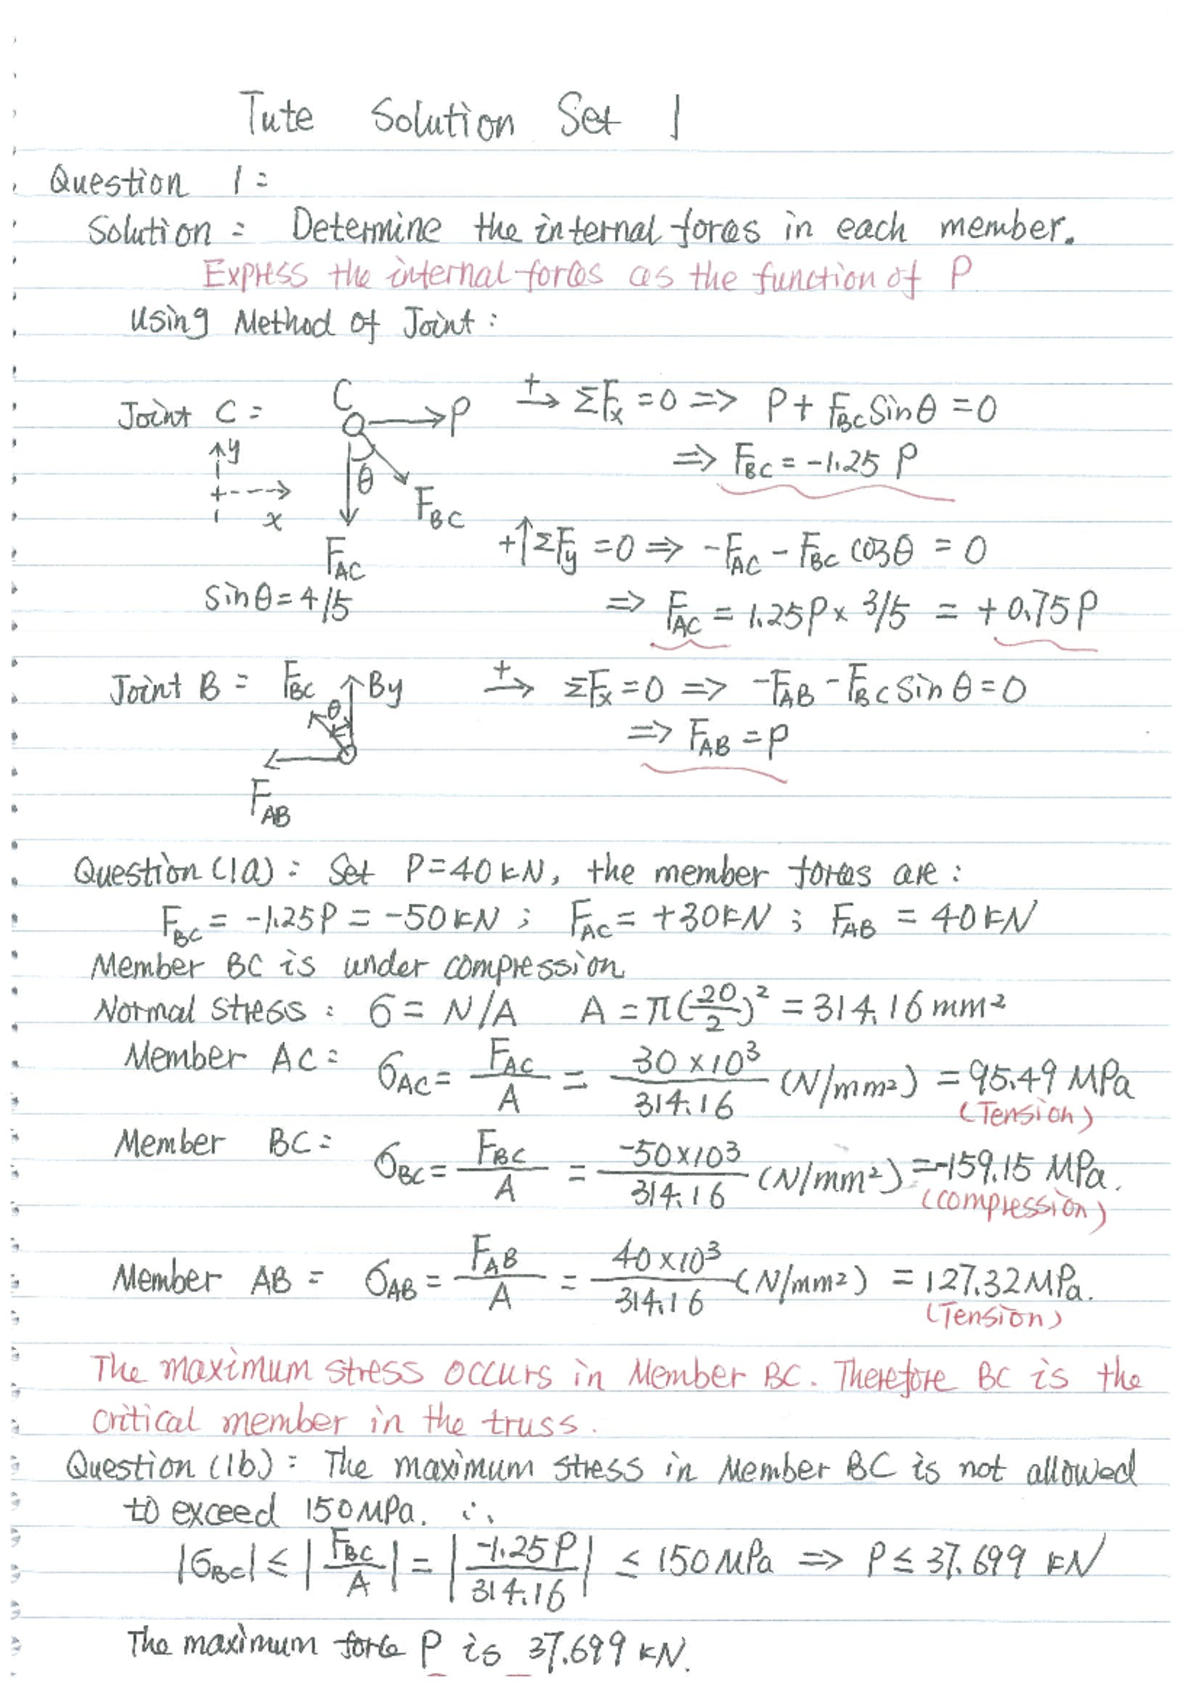 Tute Solution Set 1
Question 1:
Solution: Determine the internal forces in each member.
Express the internal forces as the function of P
Using Method of Joint:
Joint C: C P +→ ΣFx = 0 => P + FBC Sinθ = 0
y => FBC = -1.25 P
x θ FBC
FAC +↑ΣFy = 0 => -FAC - FBC cosθ = 0
sinθ = 4/5 => FAC = 1.25P × 3/5 = +0.75P
Joint B: FBC By θ +→ ΣFx = 0 => -FAB - FBC sinθ = 0
=> FAB = P
FAB
Question (1a): Set P = 40 kN, the member forces are:
FBC = -1.25P = -50 kN ; FAC = +30 kN ; FAB = 40 kN
Member BC is under compression
Normal Stress: σ = N/A A = π(20/2)² = 314.16 mm²
Member AC: σAC = FAC/A = 30×10³/314.16 (N/mm²) = 95.49 MPa
(Tension)
Member BC: σBC = FBC/A = -50×10³/314.16 (N/mm²) = -159.15 MPa.
(compression)
Member AB: σAB = FAB/A = 40×10³/314.16 (N/mm²) = 127.32 MPa.
(Tension)
The maximum stress occurs in Member BC. Therefore BC is the
critical member in the truss.
Question (1b): The maximum stress in Member BC is not allowed
to exceed 150 MPa. ∴
|σBC| ≤ |FBC/A| = |-1.25 P/314.16| ≤ 150 MPa => P ≤ 37.699 kN
The maximum force P is 37.699 kN.